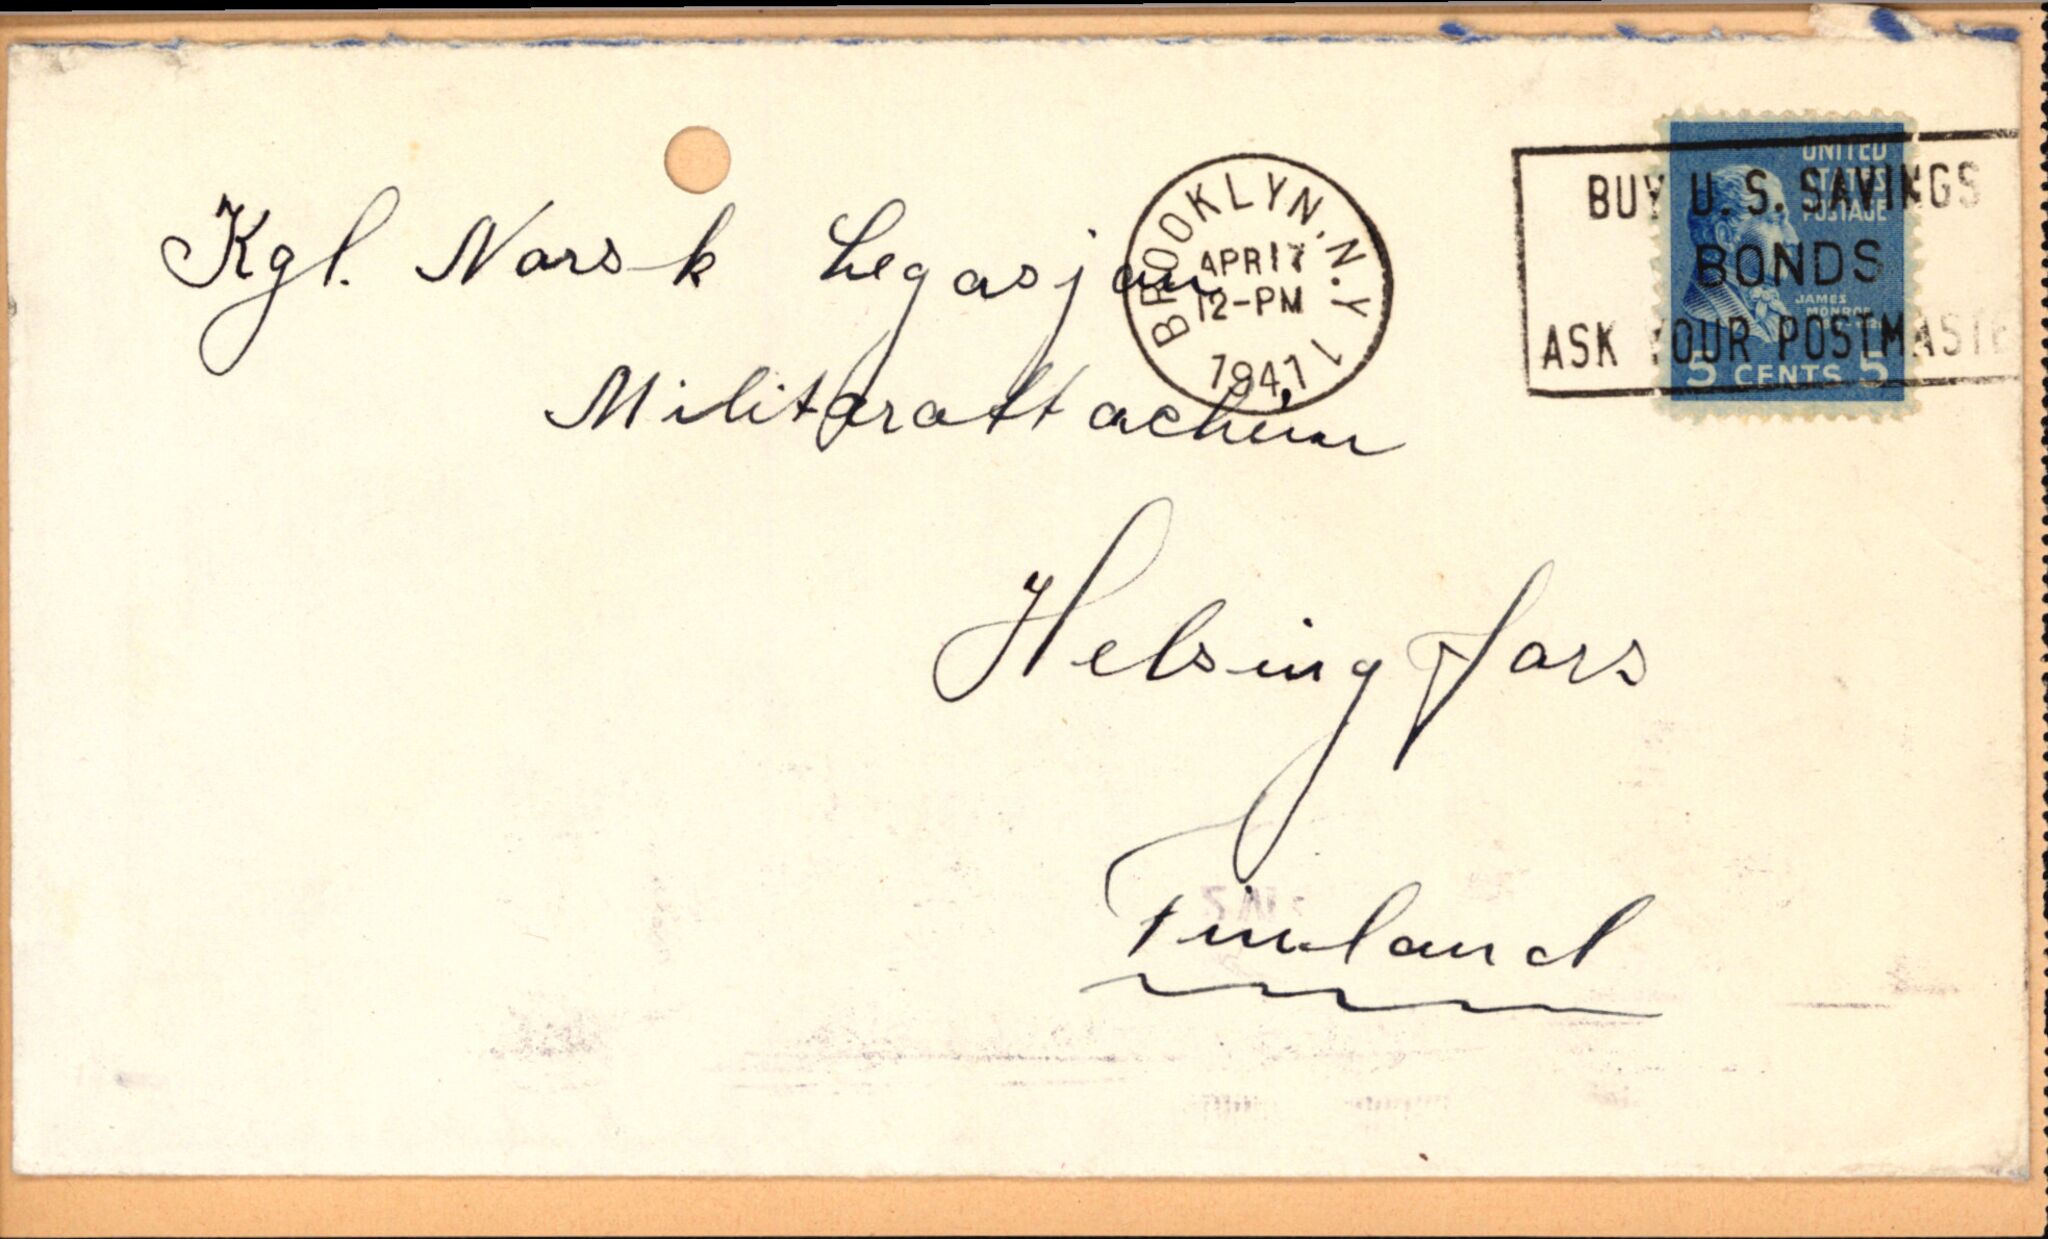 Kgl. Norsk Legasjon,
Militærattacheen
Helsingfors
Finland
BROOKLYN, N.Y. 1
APR 17
12-PM
1947
BUY U.S. SAVINGS
BONDS
ASK YOUR POSTMASTE
UNITED
STATES
POSTAGE
JAMES
MONROE
5 CENTS 5